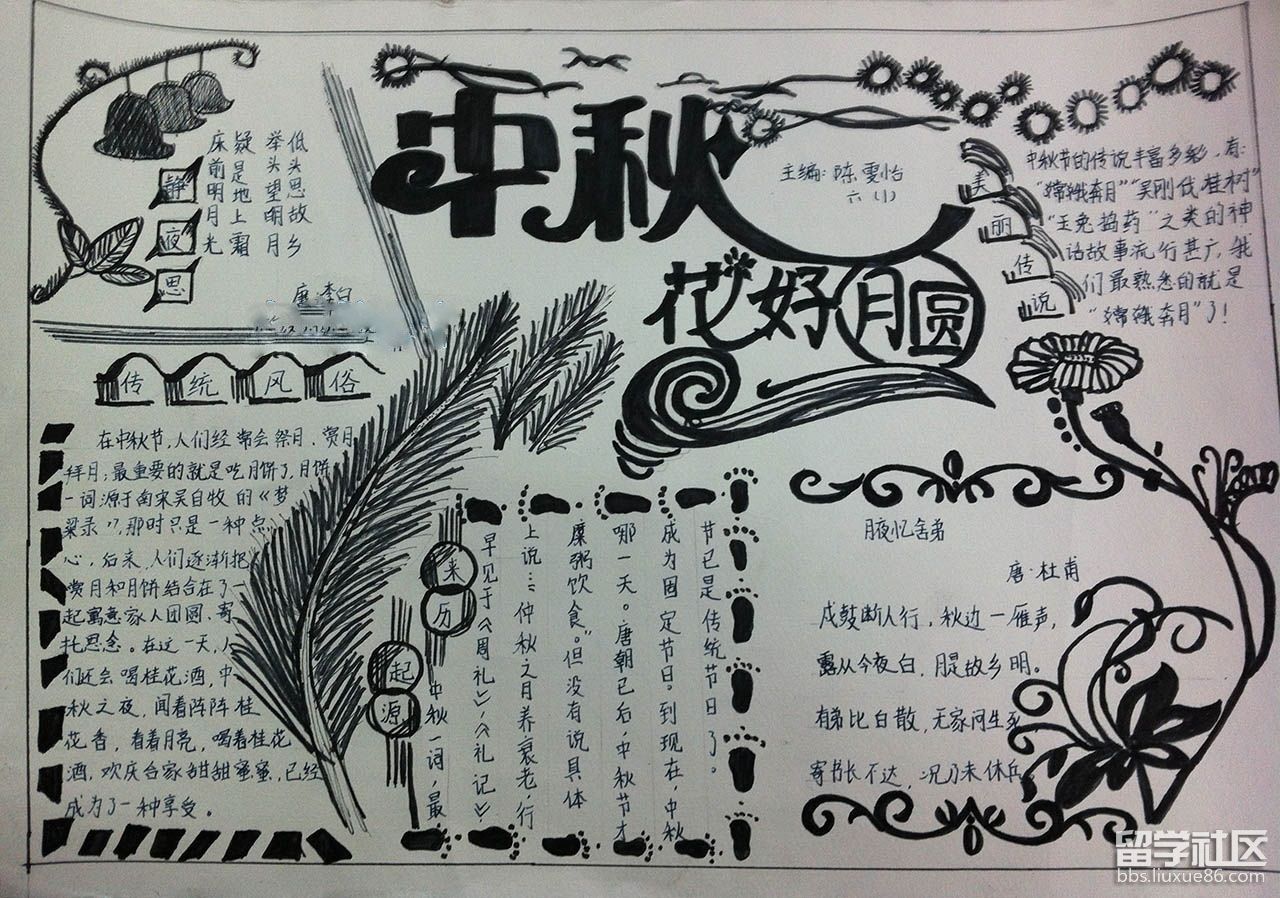 静夜思
床前明月光
疑是地上霜
举头望明月
低头思故乡
唐·李白
中秋
主编:陈雯怡
六(1)
花好月圆
美丽传说
中秋节的传说丰富多彩,有:
“嫦娥奔月”“吴刚伐桂树”
“玉兔捣药”之类的神
话故事流行甚广,我
们最熟悉的就是
“嫦娥奔月”了!
传统风俗
在中秋节,人们经常会祭月、赏月
拜月;最重要的就是吃月饼了,月饼
一词源于南宋吴自牧的《梦
梁录》,那时只是一种点
心,后来,人们逐渐把
赏月和月饼结合在了一
起寓意家人团圆、寄
托思念。在这一天,人
们还会喝桂花酒,中
秋之夜,闻着阵阵桂
花香,看着月亮,喝着桂花
酒,欢庆合家甜甜蜜蜜,已经
成为了一种享受。
来历
起源
中秋一词,最
早见于《周礼》,《礼记》
上说:“仲秋之月养衰老,行
糜粥饮食。”但没有说具体
哪一天。唐朝已后,中秋节才
成为固定节日。到现在,中秋
节已是传统节日了。
月夜忆舍弟
唐·杜甫
戍鼓断人行,秋边一雁声,
露从今夜白,月是故乡明。
有弟皆白散,无家问生死
寄书长不达,况乃未休兵。
留学社区
bbs.liuxue86.com